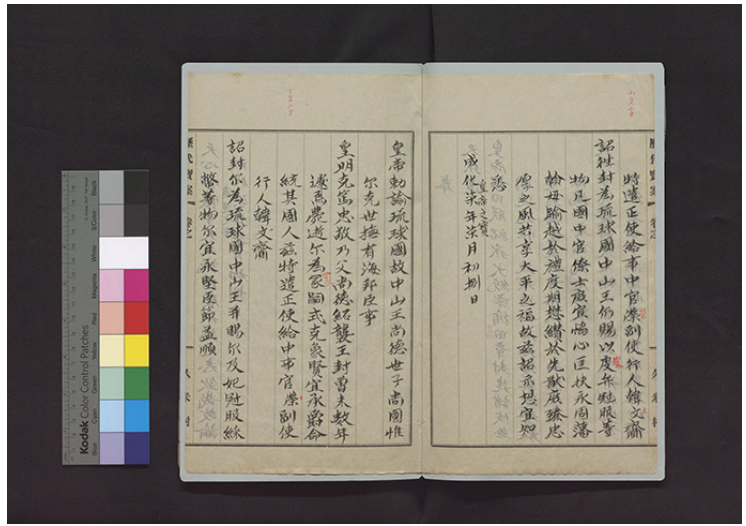 特遣正使給事中官榮副使行人韓文齋
詔往封為琉球國中山王仍賜以皮弁冠服等
物凡國中官僚士庶宜恊心匡扶永固藩
輸毋踰越於禮度期懋纘於先猷庶臻忠
之風共享太平之福故茲詔示想宜知
悉
皇帝之寶
成化柒年柒月初捌日
皇帝勅諭琉球國故中山王尚德世子尚圓惟
尔克世撫有海邦臣事
皇明克篤忠敬乃父尚德紹襲王封曾未數年
遽焉薨逝尔為冢嗣式克象賢宜承爵命
統其國人茲特遣正使給中事官榮副使
行人韓文齋
詔封尔為琉球國中山王并賜尔及妃冠服綵
幣等物尔宜永堅臣節益順
歷代寶案
卷之一
久米村
Kodak Color Control Patches
Blue
Cyan
Green
Yellow
Red
Magenta
White
3/Color
Black